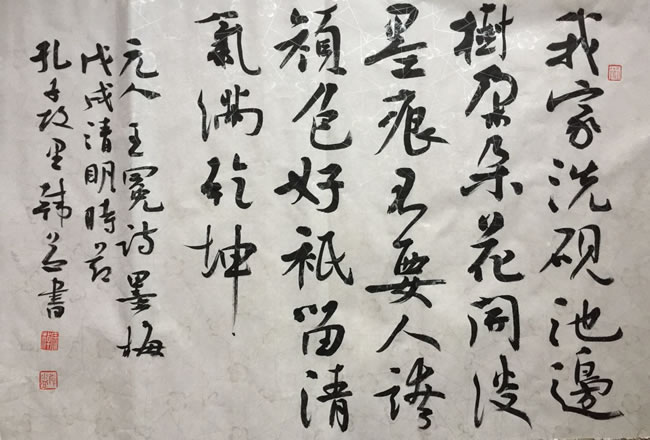 我家洗硯池邊
樹朵朵花開淡
墨痕不要人誇
顏色好祇留清
氣滿乾坤
元人王冕詩墨梅
戊戌清明時節
孔子故里韓書